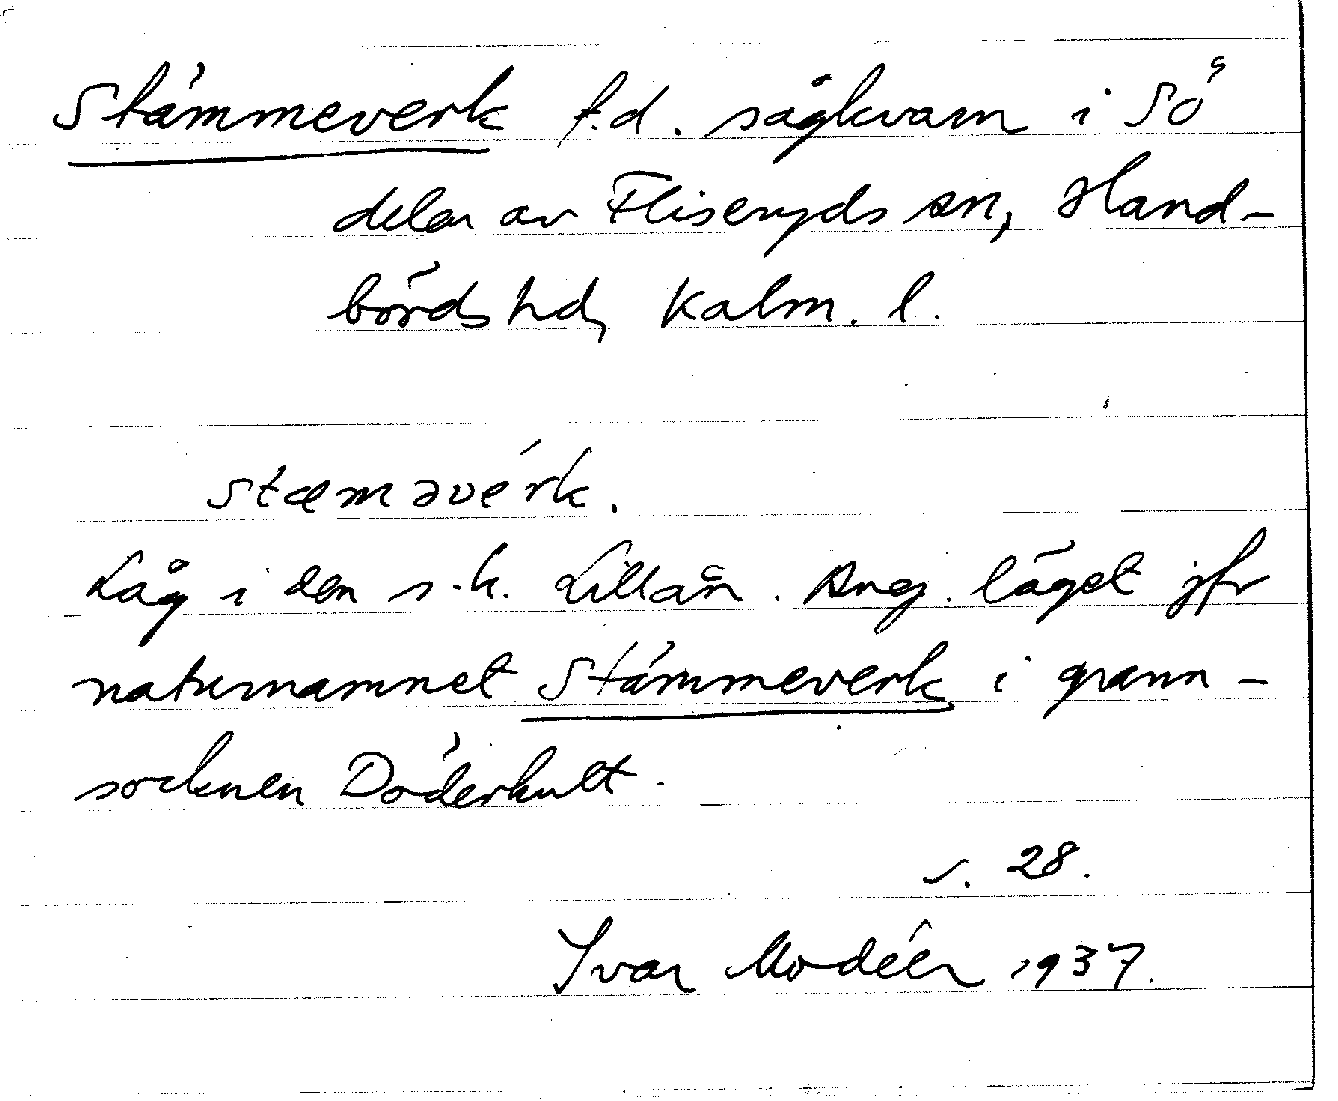 Stämmeverk f.d. sågkvarn i Sö
delar av Fliseryds sn, Hand-
börds hd, Kalm. l.
stæmǝvérk.
Låg i den s.k. Lillån. Ang. läget jfr
naturnamnet Stämmeverk i grann-
socknen Döderhult.
s. 28.
Ivar Modéer 1937.